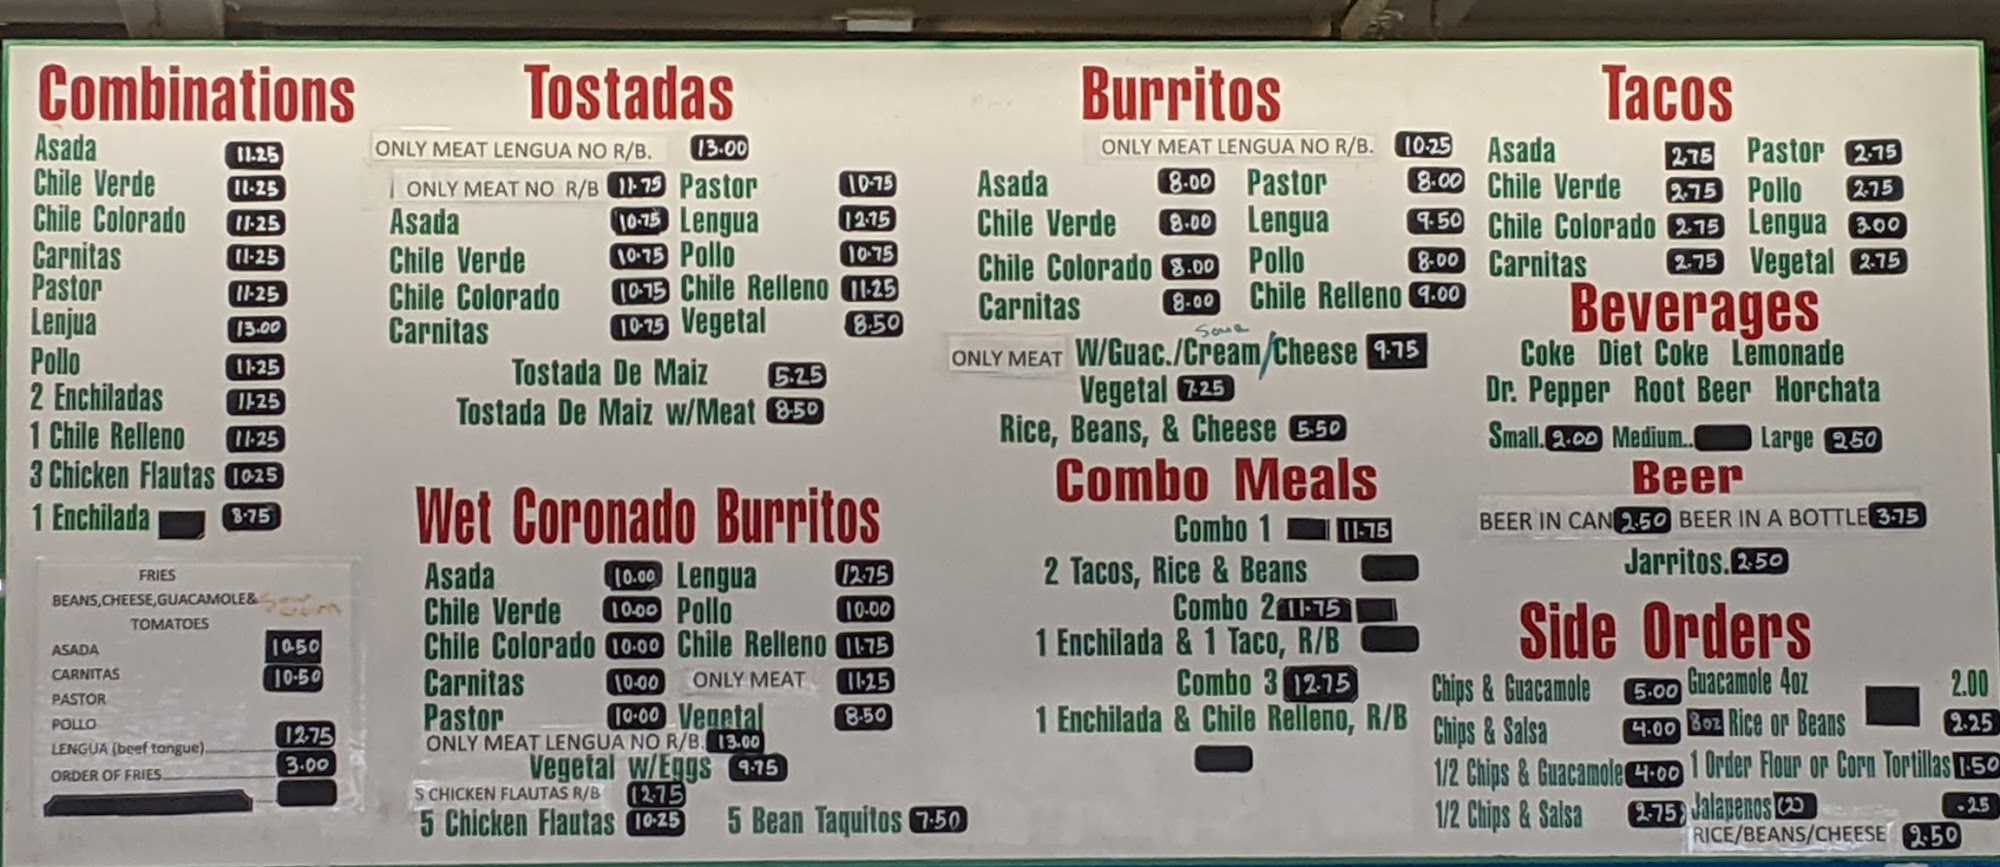 Combinations
Asada 11.25
Chile Verde 11.25
Chile Colorado 11.25
Carnitas 11.25
Pastor 11.25
Lenjua 13.00
Pollo 11.25
2 Enchiladas 11.25
1 Chile Relleno 11.25
3 Chicken Flautas 10.25
1 Enchilada 8.75
FRIES
BEANS,CHEESE,GUACAMOLE& Sour Cream
TOMATOES
ASADA 10.50
CARNITAS 10.50
PASTOR
POLLO 12.75
LENGUA (beef tongue) 3.00
ORDER OF FRIES
Tostadas
ONLY MEAT LENGUA NO R/B. 13.00
ONLY MEAT NO R/B 11.75 Pastor 10.75
Asada 10.75 Lengua 12.75
Chile Verde 10.75 Pollo 10.75
Chile Colorado 10.75 Chile Relleno 11.25
Carnitas 10.75 Vegetal 8.50
Tostada De Maiz 5.25
Tostada De Maiz w/Meat 8.50
Wet Coronado Burritos
Asada 10.00 Lengua 12.75
Chile Verde 10.00 Pollo 10.00
Chile Colorado 10.00 Chile Relleno 11.75
Carnitas 10.00 ONLY MEAT 11.25
Pastor 10.00 Vegetal 8.50
ONLY MEAT LENGUA NO R/B. 13.00
Vegetal w/Eggs 9.75
5 CHICKEN FLAUTAS R/B 12.75
5 Chicken Flautas 10.25 5 Bean Taquitos 7.50
Burritos
ONLY MEAT LENGUA NO R/B. 10.25
Asada 8.00 Pastor 8.00
Chile Verde 8.00 Lengua 9.50
Chile Colorado 8.00 Pollo 8.00
Carnitas 8.00 Chile Relleno 9.00
Sour
ONLY MEAT W/Guac./Cream/Cheese 9.75
Vegetal 7.25
Rice, Beans, & Cheese 5.50
Combo Meals
Combo 1 11.75
2 Tacos, Rice & Beans
Combo 2 11.75
1 Enchilada & 1 Taco, R/B
Combo 3 12.75
1 Enchilada & Chile Relleno, R/B
Tacos
Asada 2.75 Pastor 2.75
Chile Verde 2.75 Pollo 2.75
Chile Colorado 2.75 Lengua 3.00
Carnitas 2.75 Vegetal 2.75
Beverages
Coke Diet Coke Lemonade
Dr. Pepper Root Beer Horchata
Small. 2.00 Medium.. Large 2.50
Beer
BEER IN CAN 2.50 BEER IN A BOTTLE 3.75
Jarritos. 2.50
Side Orders
Chips & Guacamole 5.00 Guacamole 4oz 2.00
Chips & Salsa 4.00 8oz Rice or Beans 2.25
1/2 Chips & Guacamole 4.00 1 Order Flour or Corn Tortillas 1.50
1/2 Chips & Salsa 2.75 Jalapenos (2) .25
RICE/BEANS/CHEESE 2.50